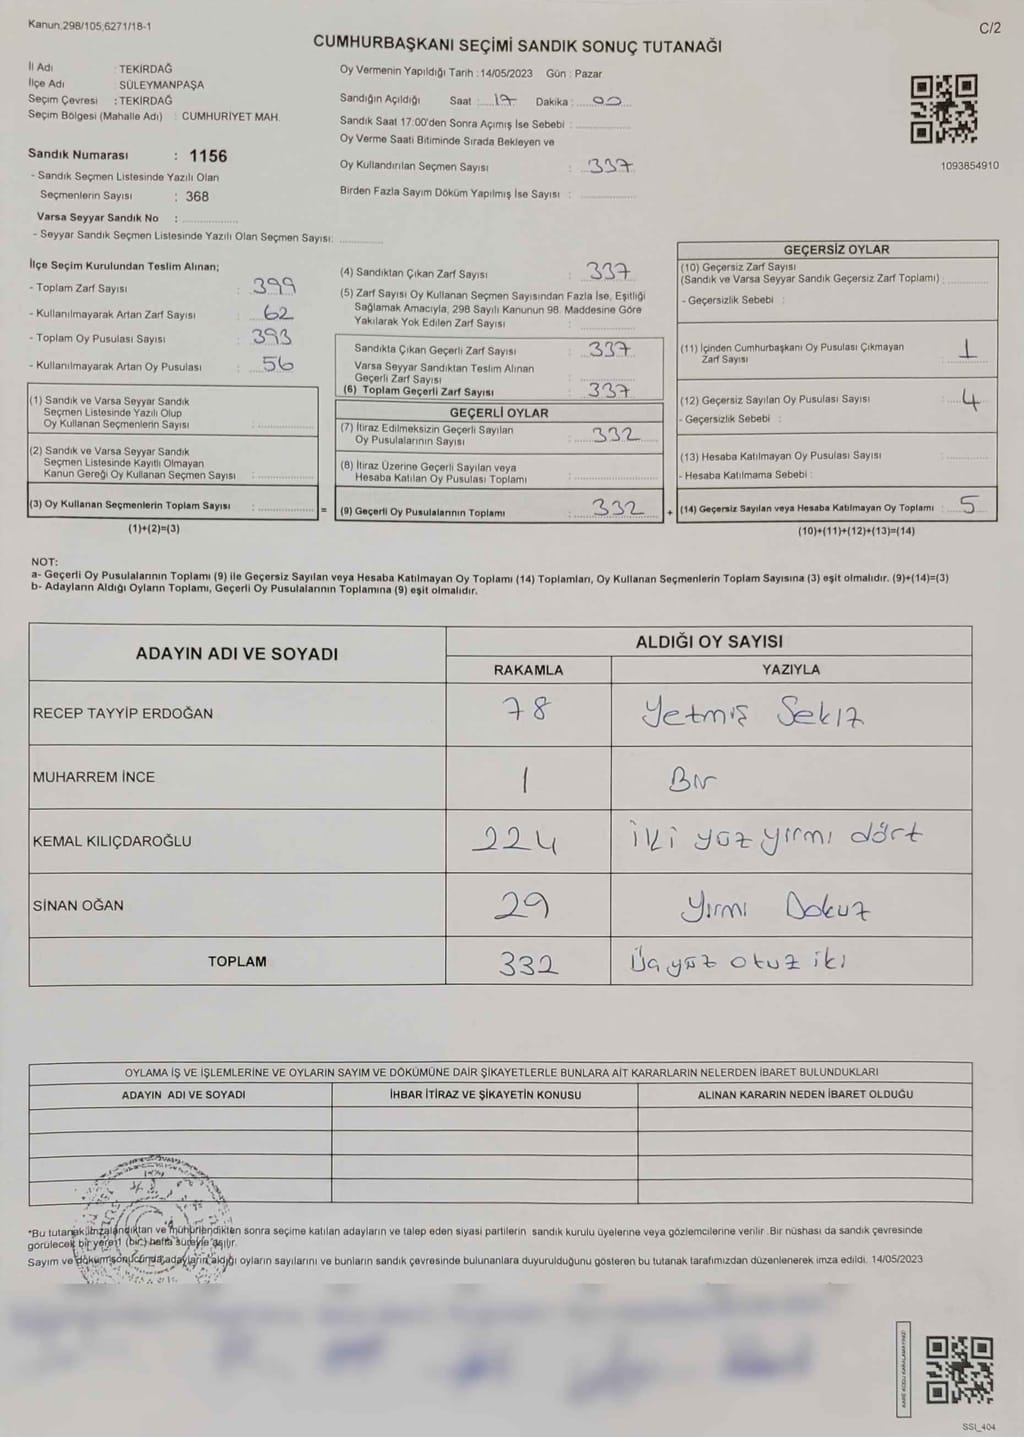 Kanun,298/105,6271/18-1
C/2
CUMHURBAŞKANI SEÇİMİ SANDIK SONUÇ TUTANAĞI
İl Adı : TEKİRDAĞ
İlçe Adı : SÜLEYMANPAŞA
Seçim Çevresi : TEKİRDAĞ
Seçim Bölgesi (Mahalle Adı) : CUMHURİYET MAH.
Sandık Numarası : 1156
- Sandık Seçmen Listesinde Yazılı Olan
Seçmenlerin Sayısı : 368
Varsa Seyyar Sandık No :
- Seyyar Sandık Seçmen Listesinde Yazılı Olan Seçmen Sayısı:
Oy Vermenin Yapıldığı Tarih : 14/05/2023 Gün : Pazar
Sandığın Açıldığı Saat : 17 Dakika : 00
Sandık Saat 17:00'den Sonra Açımış İse Sebebi :
Oy Verme Saati Bitiminde Sırada Bekleyen ve
Oy Kullandırılan Seçmen Sayısı : 337
Birden Fazla Sayım Döküm Yapılmış İse Sayısı :
1093854910
İlçe Seçim Kurulundan Teslim Alınan;
- Toplam Zarf Sayısı : 399
- Kullanılmayarak Artan Zarf Sayısı : 62
- Toplam Oy Pusulası Sayısı : 393
- Kullanılmayarak Artan Oy Pusulası : 56
(1) Sandık ve Varsa Seyyar Sandık
Seçmen Listesinde Yazılı Olup
Oy Kullanan Seçmenlerin Sayısı :
(2) Sandık ve Varsa Seyyar Sandık
Seçmen Listesinde Kayıtlı Olmayan
Kanun Gereği Oy Kullanan Seçmen Sayısı :
(3) Oy Kullanan Seçmenlerin Toplam Sayısı : =
(1)+(2)=(3)
(4) Sandıktan Çıkan Zarf Sayısı : 337
(5) Zarf Sayısı Oy Kullanan Seçmen Sayısından Fazla İse, Eşitliği
Sağlamak Amacıyla, 298 Sayılı Kanunun 98. Maddesine Göre
Yakılarak Yok Edilen Zarf Sayısı :
Sandıkta Çıkan Geçerli Zarf Sayısı : 337
Varsa Seyyar Sandıktan Teslim Alınan
Geçerli Zarf Sayısı :
(6) Toplam Geçerli Zarf Sayısı : 337
GEÇERLİ OYLAR
(7) İtiraz Edilmeksizin Geçerli Sayılan
Oy Pusulalarının Sayısı : 332
(8) İtiraz Üzerine Geçerli Sayılan veya
Hesaba Katılan Oy Pusulası Toplamı :
(9) Geçerli Oy Pusulalarının Toplamı : 332 +
GEÇERSİZ OYLAR
(10) Geçersiz Zarf Sayısı
(Sandık ve Varsa Seyyar Sandık Geçersiz Zarf Toplamı) :
- Geçersizlik Sebebi :
(11) İçinden Cumhurbaşkanı Oy Pusulası Çıkmayan
Zarf Sayısı : 1
(12) Geçersiz Sayılan Oy Pusulası Sayısı : 4
- Geçersizlik Sebebi :
(13) Hesaba Katılmayan Oy Pusulası Sayısı :
- Hesaba Katılmama Sebebi :
(14) Geçersiz Sayılan veya Hesaba Katılmayan Oy Toplamı : 5
(10)+(11)+(12)+(13)=(14)
NOT:
a- Geçerli Oy Pusulalarının Toplamı (9) ile Geçersiz Sayılan veya Hesaba Katılmayan Oy Toplamı (14) Toplamları, Oy Kullanan Seçmenlerin Toplam Sayısına (3) eşit olmalıdır. (9)+(14)=(3)
b- Adayların Aldığı Oyların Toplamı, Geçerli Oy Pusulalarının Toplamına (9) eşit olmalıdır.
ADAYIN ADI VE SOYADI
ALDIĞI OY SAYISI
RAKAMLA YAZIYLA
RECEP TAYYİP ERDOĞAN 78 Yetmiş Sekiz
MUHARREM İNCE 1 Bir
KEMAL KILIÇDAROĞLU 224 iki yüz yirmi dört
SİNAN OĞAN 29 Yirmi Dokuz
TOPLAM 332 Üç yüz otuz iki
OYLAMA İŞ VE İŞLEMLERİNE VE OYLARIN SAYIM VE DÖKÜMÜNE DAİR ŞİKAYETLERLE BUNLARA AİT KARARLARIN NELERDEN İBARET BULUNDUKLARI
ADAYIN ADI VE SOYADI İHBAR İTİRAZ VE ŞİKAYETİN KONUSU ALINAN KARARIN NEDEN İBARET OLDUĞU
*Bu tutanak,imzalandıktan ve mühürlendikten sonra seçime katılan adayların ve talep eden siyasi partilerin sandık kurulu üyelerine veya gözlemcilerine verilir .Bir nüshası da sandık çevresinde
görülecek bir yere 1 (bir) hafta süreyle asılır.
Sayım ve döküm sonucunda,adayların aldığı oyların sayılarını ve bunların sandık çevresinde bulunanlara duyurulduğunu gösteren bu tutanak tarafımızdan düzenlenerek imza edildi. 14/05/2023
KARE KODU KARALAMAYINIZ!
SSI_404